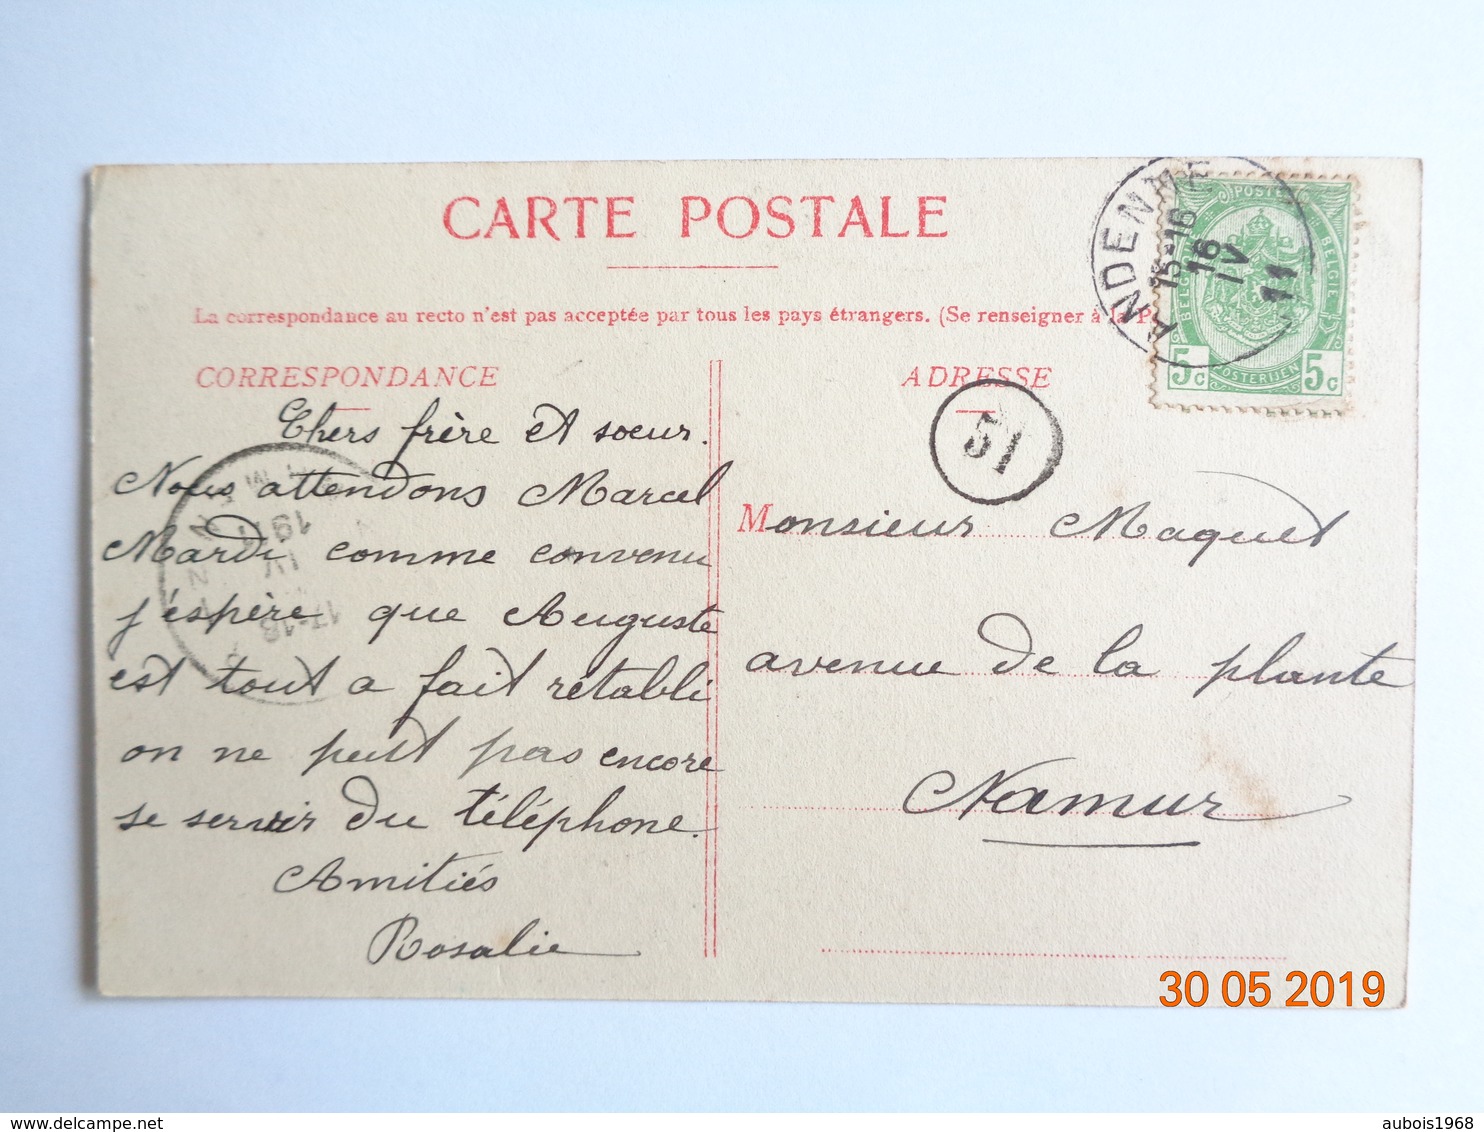 CARTE POSTALE
La correspondance au recto n'est pas acceptée par tous les pays étrangers. (Se renseigner à la P
CORRESPONDANCE
Chers frère et soeur.
Nous attendons Marcel
Mardi comme convenu
j'éspère que Auguste
est tout a fait rétabli
on ne peut pas encore
se servir du téléphone.
Amitiés
Rosalie
ADRESSE
51
Monsieur Maquet
avenue de la plante
Namur
ANDENNE
15-16
16
IV
11
POSTES
BELGIQUE
BELGIE
POSTERIJEN
5c 5c
NAMUR
19
IV
17-18
30 05 2019
aubois1968